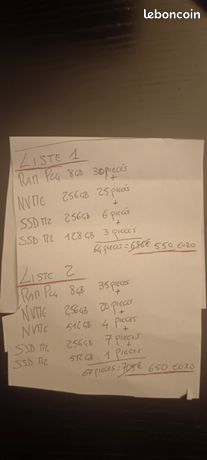 leboncoin
LISTE 1
RAM PC4 8GB 30 pieces
+
NVME 256GB 25 pieces
+
SSD M2 256GB 6 pieces
+
SSD M2 128GB 3 pieces
64 pieces = 636€ 550 euro
LISTE 2
RAM PC4 8GB 35 pieces
+
NVME 256GB 20 pieces
+
NVME 512GB 4 pieces
+
SSD M2 256GB 7 pieces
+
SSD M2 512GB 1 pieces
67 pieces = 705€ 650 euro